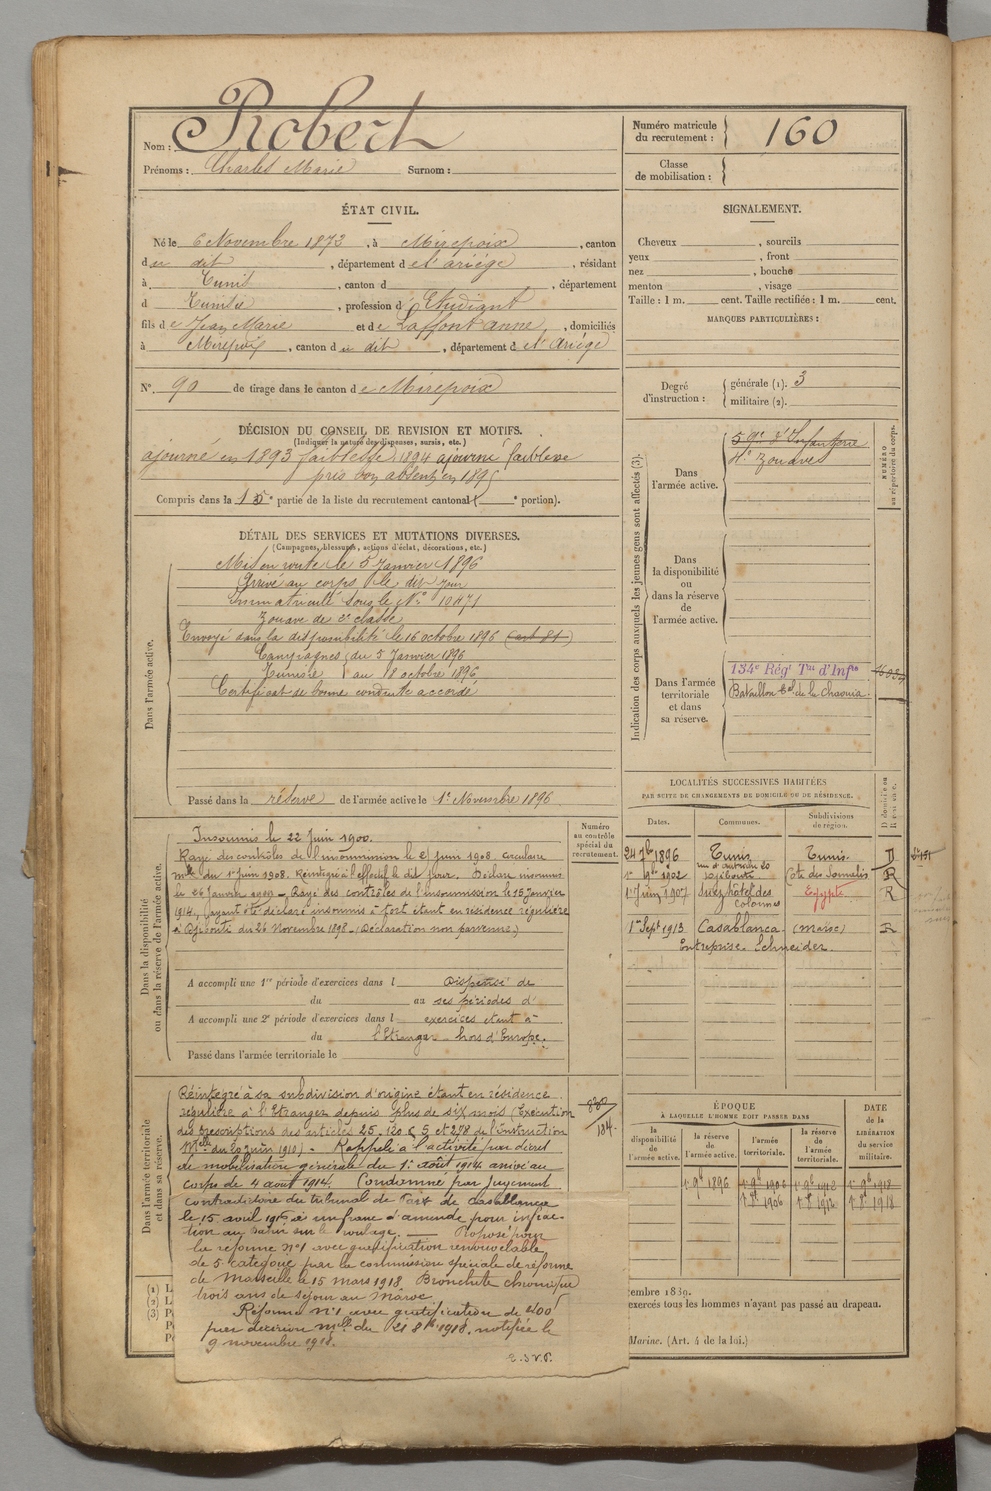 Nom : Robert
Prénoms : Charles Marie Surnom :
Numéro matricule du recrutement : 160
Classe de mobilisation :
ÉTAT CIVIL.
Né le 6 Novembre 1872, à Mirepoix, canton
du dit, département de l'ariège, résidant
à Tunis, canton d , département
d Tunisie, profession d Etudiant
fils de Jean Marie et de Laffont anne, domiciliés
à Mirepoix, canton du dit, département de l'Ariège
N° 90 de tirage dans le canton de Mirepoix
SIGNALEMENT.
Cheveux , sourcils
yeux , front
nez , bouche
menton , visage
Taille : 1 m. cent. Taille rectifiée : 1 m. cent.
MARQUES PARTICULIÈRES :
Degré d'instruction : générale (1). 3
militaire (2).
DÉCISION DU CONSEIL DE REVISION ET MOTIFS.
(Indiquer la nature des dispenses, sursis, etc.)
ajourné en 1893 faiblesse, 1894 ajourné faiblesse
pris bon absent en 1895
Compris dans la partie de la liste du recrutement cantonal ( portion).
DÉTAIL DES SERVICES ET MUTATIONS DIVERSES.
(Campagnes, blessures, actions d'éclat, décorations, etc.)
Dans l'armée active.
Mis en route le 5 Janvier 1896
Arrivé au corps le dit jour
Immatriculé sous le N° 10471
Zouave de 2e classe
Envoyé dans la disponibilité le 16 octobre 1896
Campagnes du 5 Janvier 1896
Tunisie au 18 octobre 1896
Certificat de bonne conduite accordé
Passé dans la réserve de l'armée active le 1er Novembre 1896
Indication des corps auxquels les jeunes gens sont affectés (3).
NUMÉRO au répertoire du corps.
Dans l'armée active.
d'Infanterie
4e Zouaves
Dans la disponibilité ou dans la réserve de l'armée active.
Dans l'armée territoriale et dans sa réserve.
134e Régt Tal d'Infie
Bataillon tal de la Chaouia
Dans la disponibilité ou dans la réserve de l'armée active.
Numéro au contrôle spécial du recrutement.
Insoumis le 22 Juin 1900.
Rayé des contrôles de l'insoumission le 2 juin 1908 circulaire
mlle du 1er juin 1908. Réintégré à l'effectif le dit jour. Déclaré insoumis
le 26 Janvier – Rayé des contrôles de l'insoumission le 15 Janvier
1914, ayant été déclaré insoumis à tort étant en résidence régulière
à Djibouti du 26 Novembre 1898. (Déclaration non parvenue.)
A accompli une 1re période d'exercices dans l Dispensé de
du au ses périodes d'
A accompli une 2e période d'exercices dans l exercices étant à
du l'Etranger hors d'Europe.
Passé dans l'armée territoriale le
LOCALITÉS SUCCESSIVES HABITÉES
PAR SUITE DE CHANGEMENTS DE DOMICILE OU DE RÉSIDENCE.
Dates. Communes. Subdivisions de région. D domicile ou R résidence.
24 7bre 1896 Tunis Tunis. D
1er 9bre 1902 Djibouti Côte des Somalis R
1er Juin 1907 Suez hôtel des colonies Egypte R
1er Sept 1913 Casablanca (Maroc) R
Entreprise Schneider
Dans l'armée territoriale et dans sa réserve.
Réintégré à sa subdivision d'origine étant en résidence
régulière à l'Etranger depuis plus de six mois (Exécution
des prescriptions des articles 25, 120 § 5 et 278 de l'instruction
Mlle du 20 juin 1910) – Rappelé à l'activité par décret
de mobilisation générale du 1er août 1914 arrivé au
corps le 4 août 1914. Condamné par jugement
contradictoire du tribunal de Paix de Casablanca
le 15 avril 1916 à un franc d'amende pour infrac-
tion au Dahir sur le roulage. — Proposé pour
la réforme N°1 avec gratification renouvelable
de 5e catégorie par la commission spéciale de réforme
de Marseille le 15 mars 1918. Bronchite chronique
trois ans de séjour au Maroc.
Réforme N°1 avec gratification de 400f
par décision mlle du 21 8bre 1918, notifiée le
9 novembre 1918.
T.S.V.P.
ÉPOQUE
À LAQUELLE L'HOMME DOIT PASSER DANS
DATE DE LA LIBÉRATION du service militaire.
la disponibilité de l'armée active. la réserve de l'armée active. l'armée territoriale. la réserve de l'armée territoriale.
1er 9bre 1896 1er 9bre 1906 1er 9bre 1912 1er 9bre 1918
1906 1912 1918
(1)
(2)
(3)
embre 1889.
exercés tous les hommes n'ayant pas passé au drapeau.
Marine. (Art. 4 de la loi.)